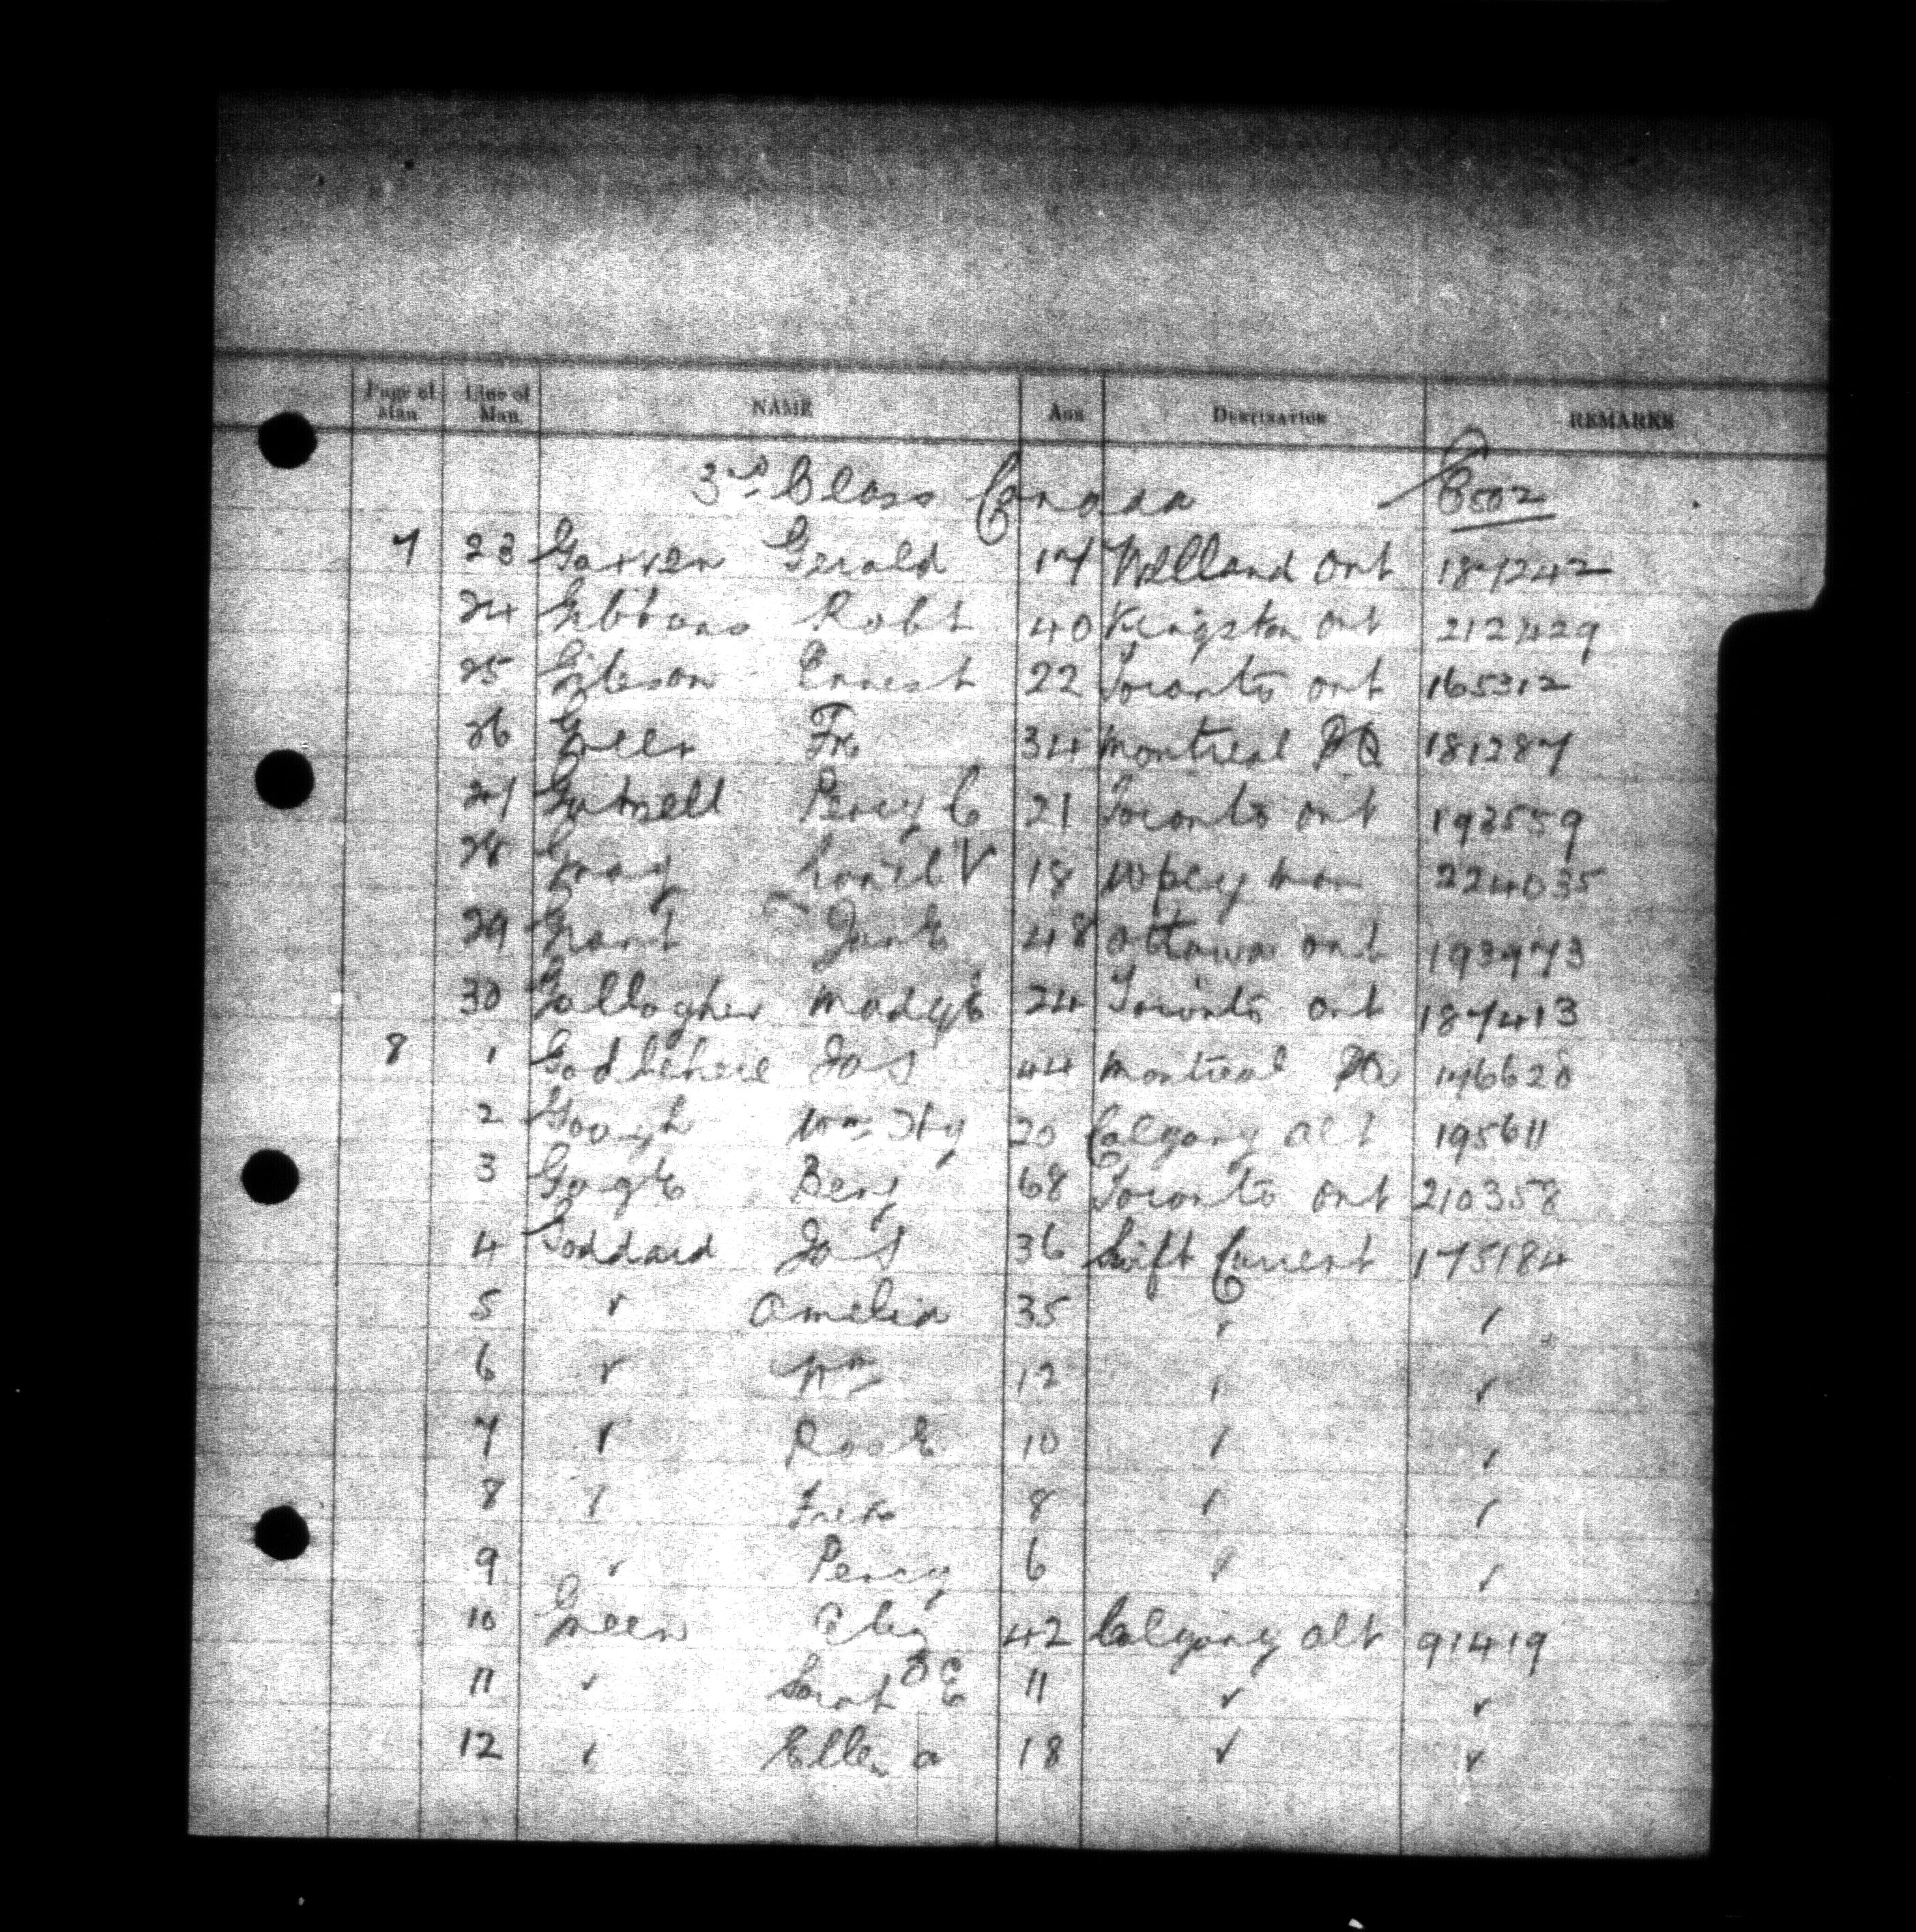 Page of Man. Line of Man. NAME AGE DESTINATION REMARKS
3rd Class Canada
7 23 Garven Gerald 17 Welland Ont 187242
24 Gibbons Robt 40 Kingston Ont 212429
25 Gibson Ernest 22 Toronto Ont 165312
26 Greer 34 Montreal PQ 181287
27 Percy C 21 Toronto Ont 193559
28 Gray V 18 Wpeg Man 224035
29 Grant Jane 48 Ottawa Ont 193973
30 Gallagher 24 Toronto Ont 187413
8 1 Jas 44 Montreal PQ 176628
2 Gough Wm Hy 20 Calgary Alt 195611
3 Benj 68 Toronto Ont 210358
4 Goddard Jas 36 Swift Current 175184
5 " Amelia 35 " "
6 " Wm 12 " "
7 " Rose 10 " "
8 " 8 " "
9 " Percy 6 " "
10 Green 42 Calgary Alt 91419
11 " Sarah E 11 " "
12 " Ellen A 18 " "